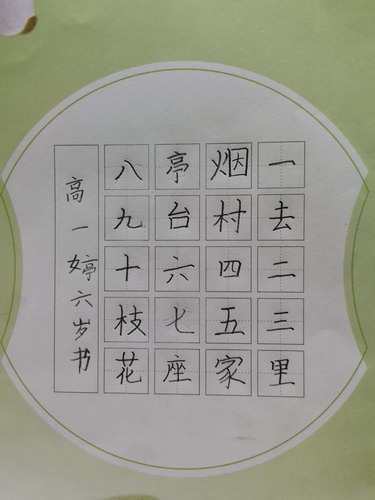 一去二三里
烟村四五家
亭台六七座
八九十枝花
高一婷六岁书